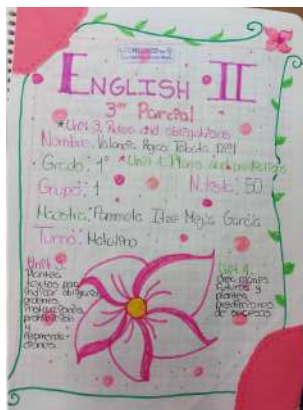 ENGLISH II
3er Parcial
*Unit 3. Rules and obligations
Nombre: Valencia Tablada
Grado: 1° *Unit 4. Plans and predictions
Grupo: 1 N.lista: 50
Maestra: Pammela Itze Mejía García
Turno: Matutino
Unit 3
Plantea
textos para
indicar obligación
ordenes
instrucciones
prohibición
y
recomenda-
ciones
Unit 4
planes
futuros y
plantea
predicciones
de sucesos